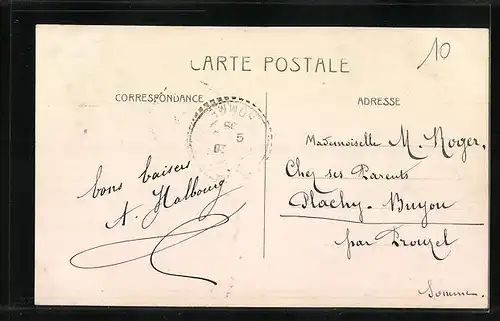 10
CARTE POSTALE
CORRESPONDANCE
ADRESSE
SOMME
bons baisers
A. Halbourg
Mademoiselle M. Roger,
Chez ses Parents
Plachy-Buyon
par Prouzel
Somme